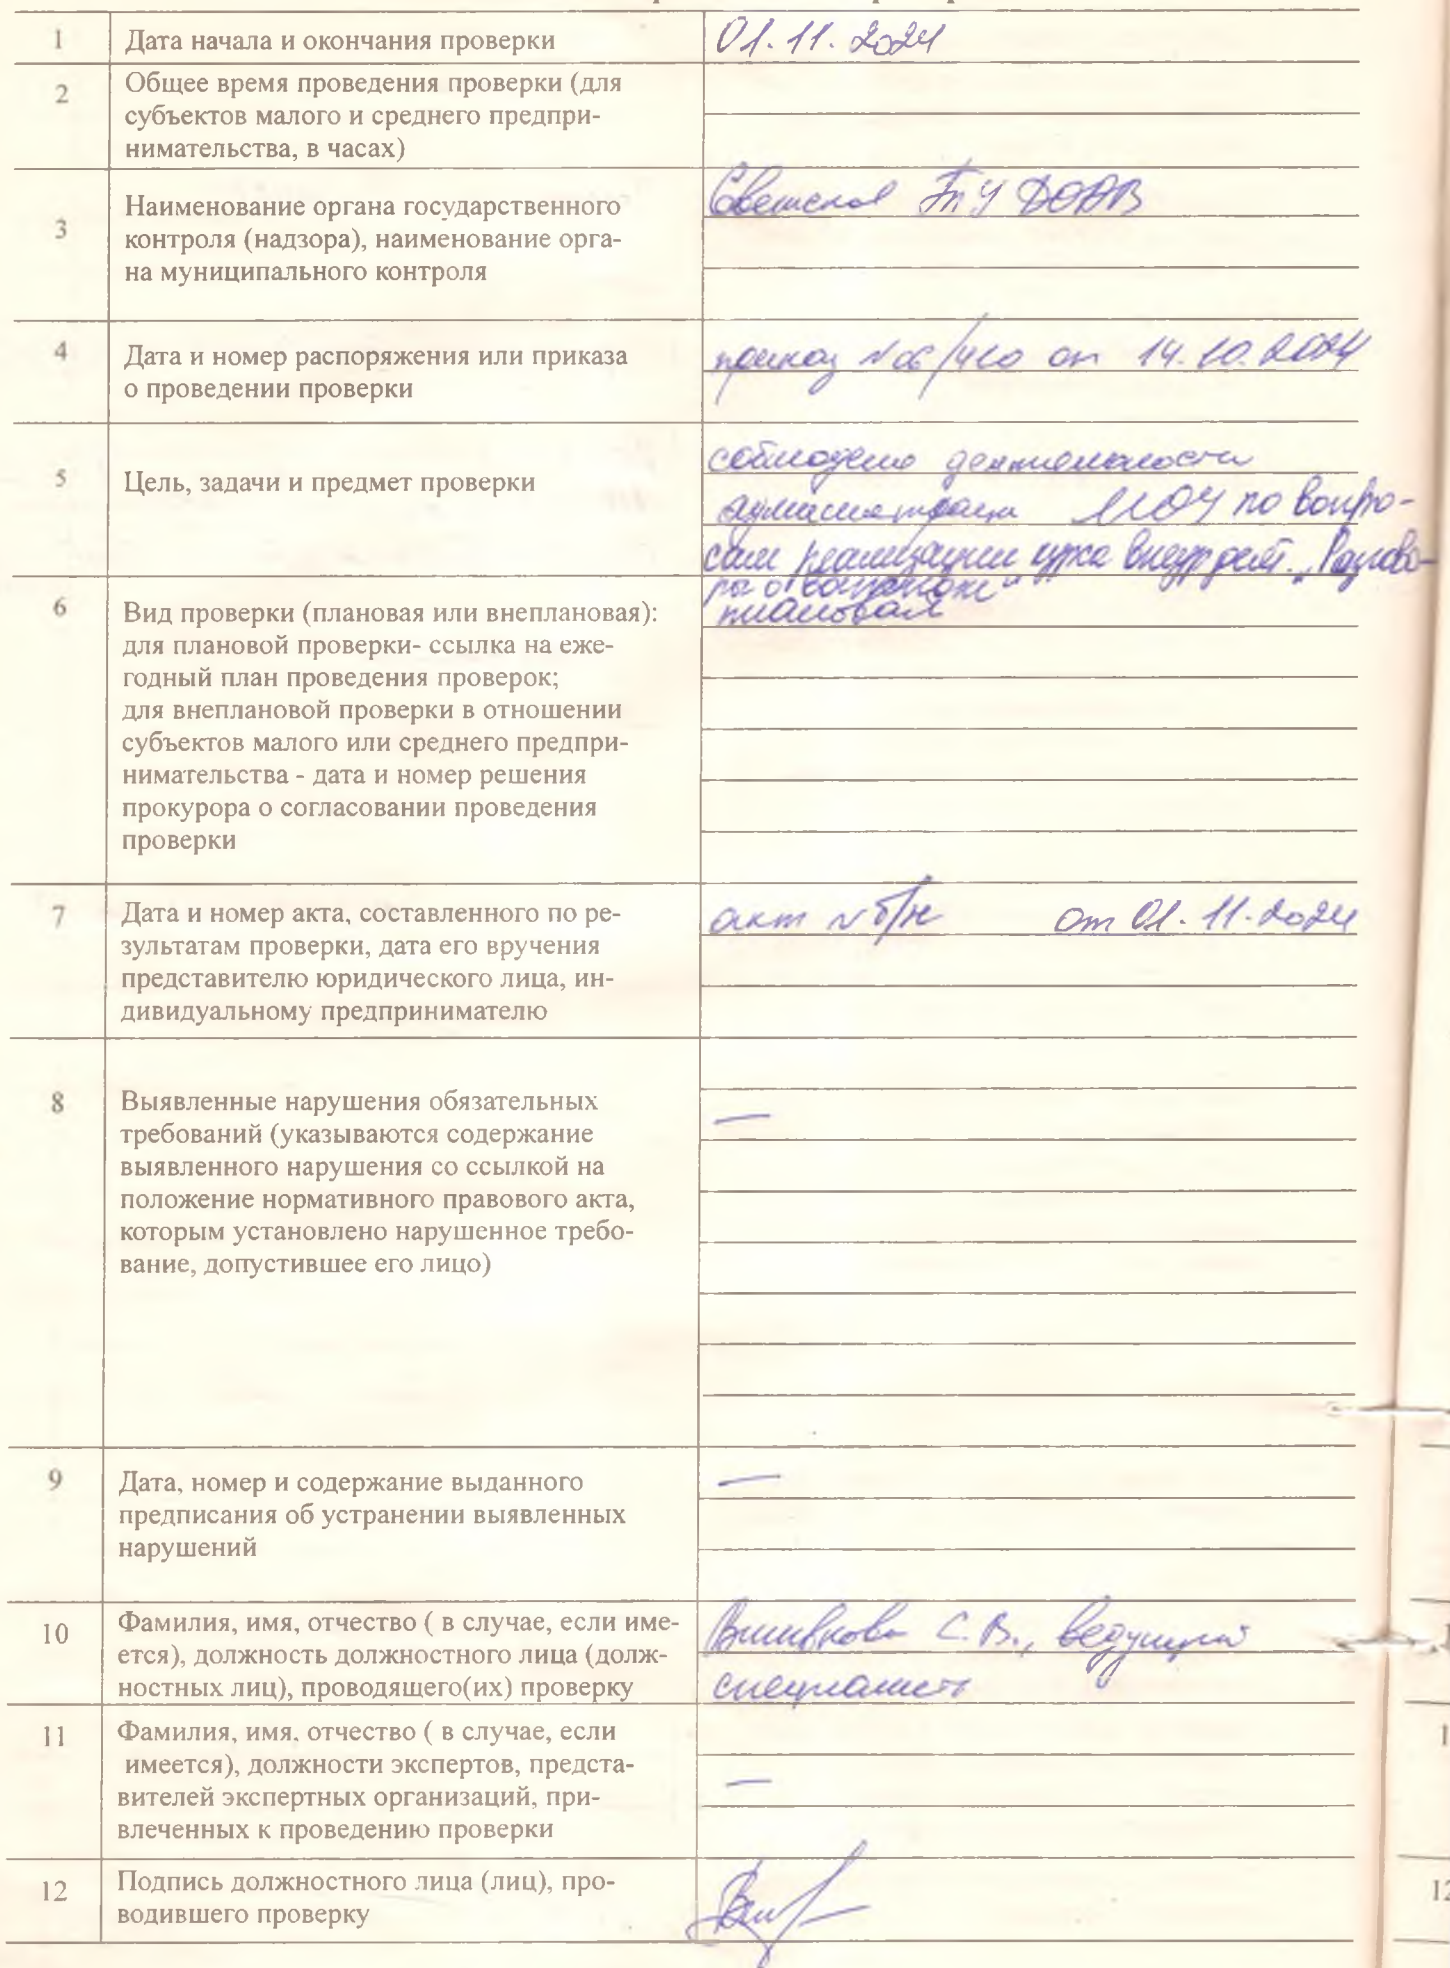 1
Дата начала и окончания проверки
01.11.2024
2
Общее время проведения проверки (для
субъектов малого и среднего предпри-
нимательства, в часах)
3
Наименование органа государственного
контроля (надзора), наименование орга-
на муниципального контроля
Советское ТУ ДОАВ
4
Дата и номер распоряжения или приказа
о проведении проверки
приказ №06/420 от 14.10.2024
5
Цель, задачи и предмет проверки
соблюдение деятельности
администрации МОУ по вопро-
сам реализации курса внеур деят. „Разгово-
ры о важном“
6
Вид проверки (плановая или внеплановая):
для плановой проверки- ссылка на еже-
годный план проведения проверок;
для внеплановой проверки в отношении
субъектов малого или среднего предпри-
нимательства - дата и номер решения
прокурора о согласовании проведения
проверки
плановая
7
Дата и номер акта, составленного по ре-
зультатам проверки, дата его вручения
представителю юридического лица, ин-
дивидуальному предпринимателю
акт № б/н от 01.11.2024
8
Выявленные нарушения обязательных
требований (указываются содержание
выявленного нарушения со ссылкой на
положение нормативного правового акта,
которым установлено нарушенное требо-
вание, допустившее его лицо)
—
9
Дата, номер и содержание выданного
предписания об устранении выявленных
нарушений
—
10
Фамилия, имя, отчество ( в случае, если име-
ется), должность должностного лица (долж-
ностных лиц), проводящего(их) проверку
Вшивкова С.В., ведущий
специалист
11
Фамилия, имя, отчество ( в случае, если
имеется), должности экспертов, предста-
вителей экспертных организаций, при-
влеченных к проведению проверки
—
12
Подпись должностного лица (лиц), про-
водившего проверку
12